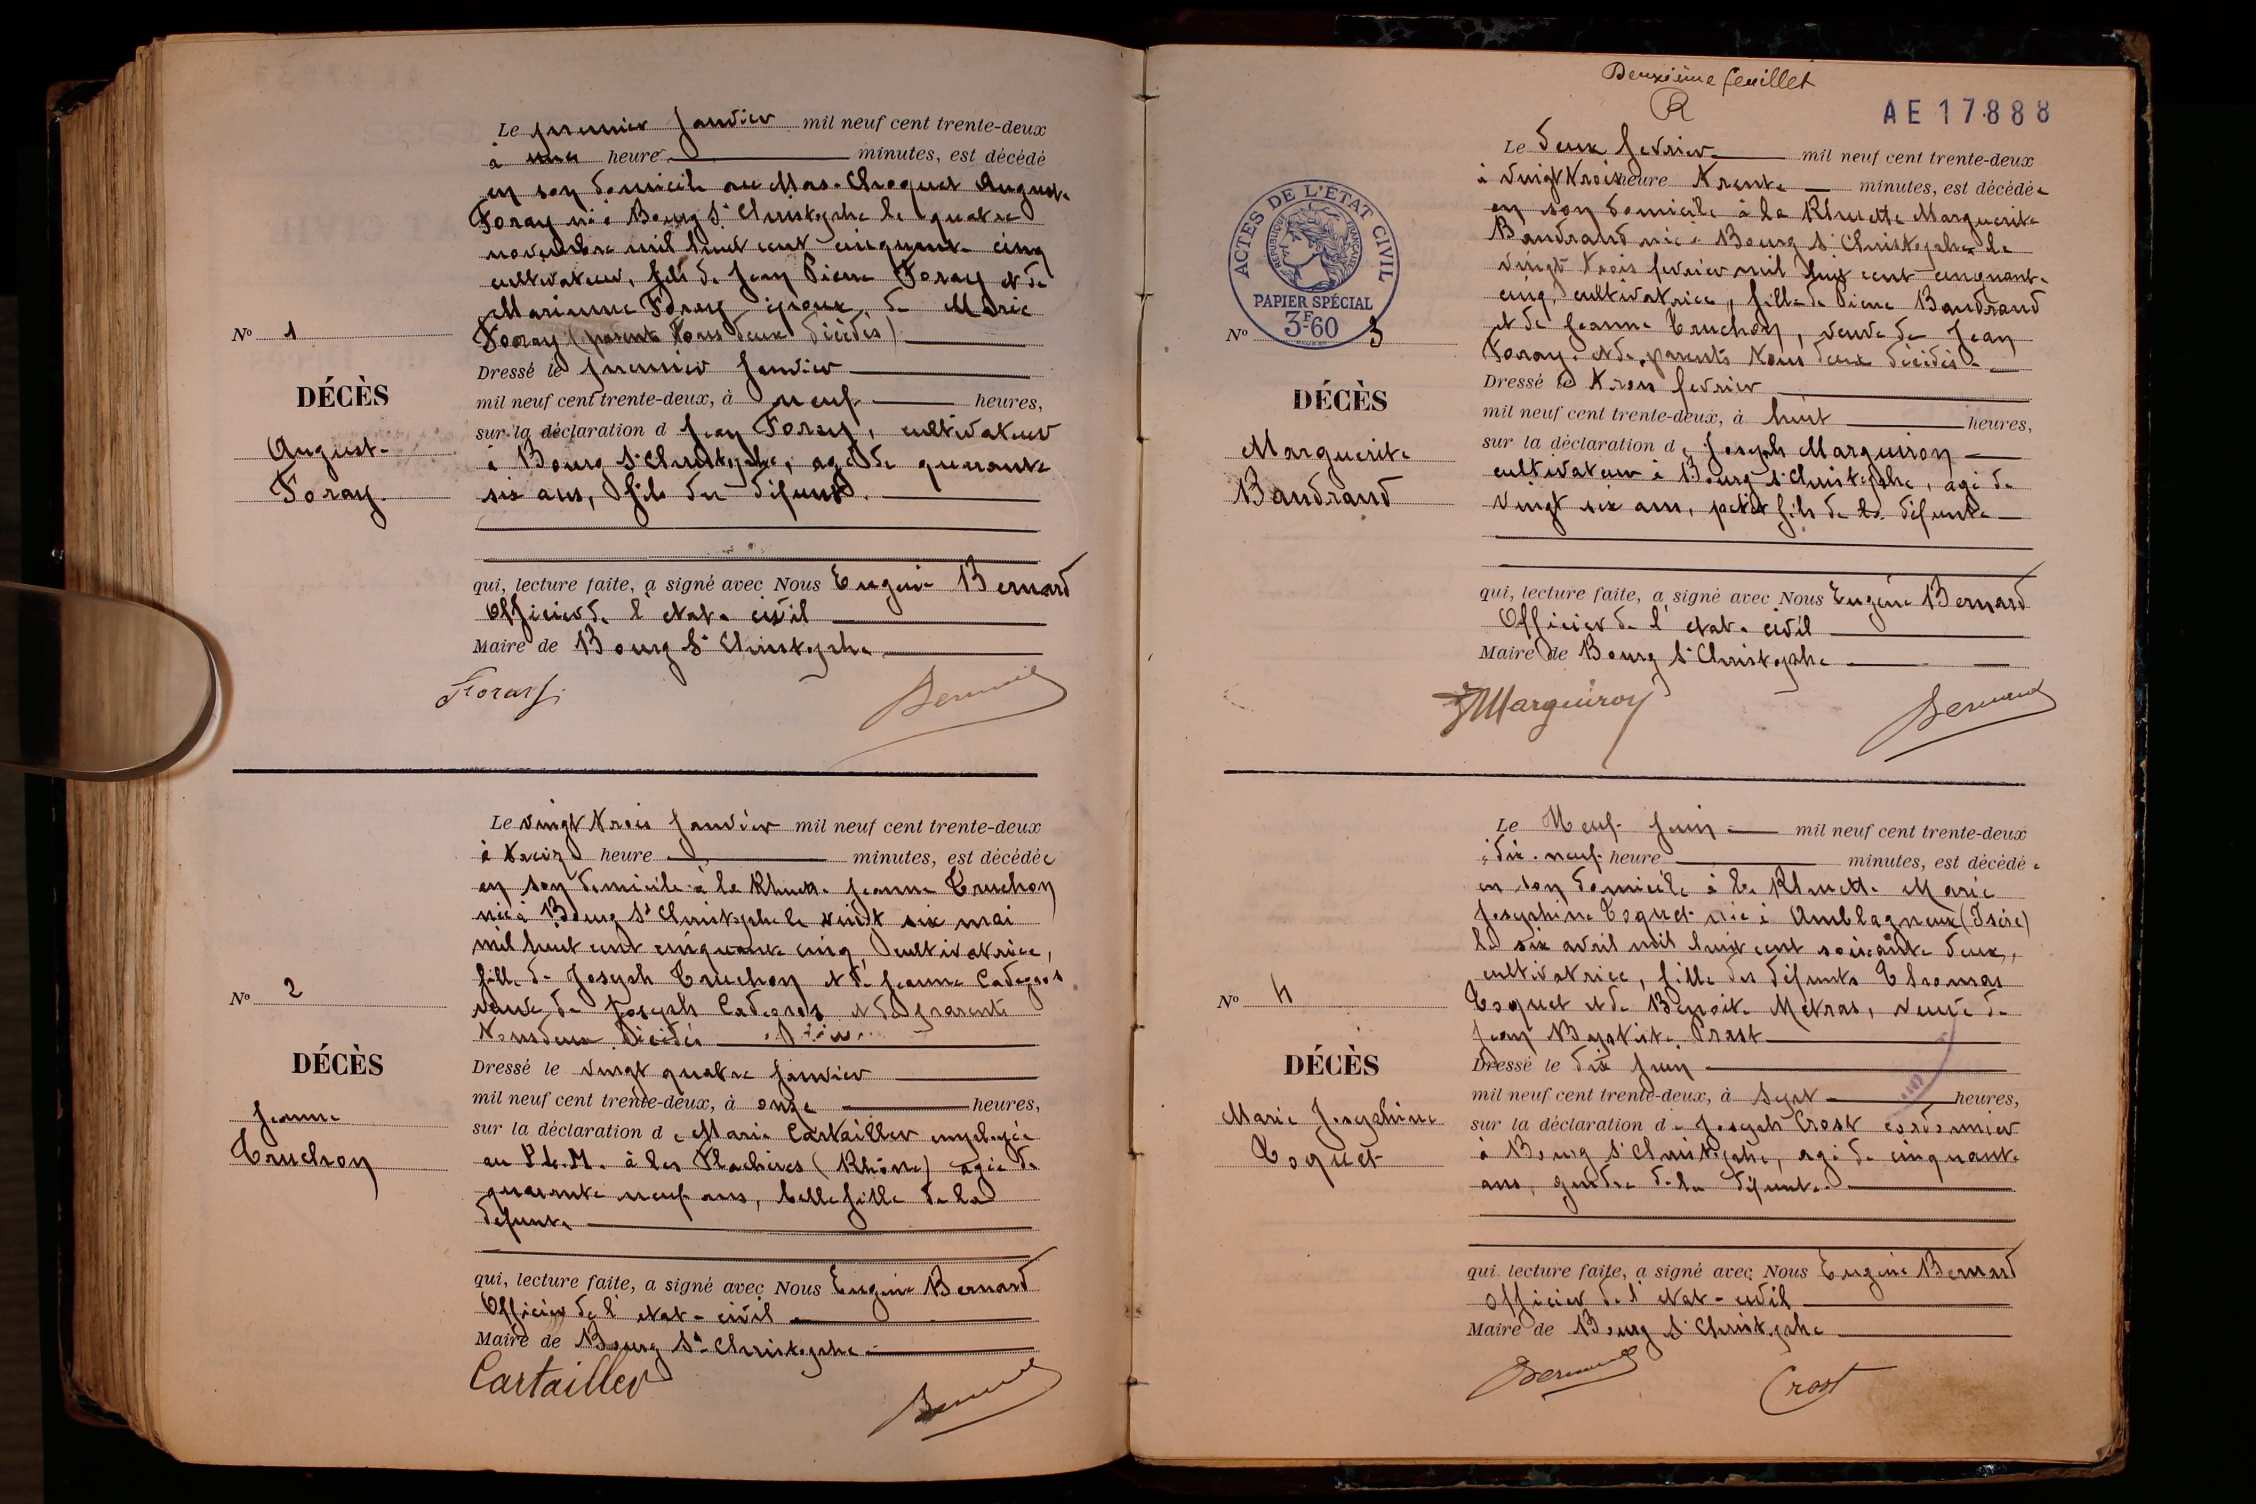 Le premier Janvier mil neuf cent trente-deux
à une heure minutes, est décédé
en son domicile au Mas-Choquet August-
Foray né à Bourg St Christophe le quatre
novembre mil huit cent cinquante cinq
cultivateur, fils de Jean Pierre Foray et de
Marianne Foray époux de Marie
Foray (parents tous deux décédés)
Nº 1
DÉCÈS
August-
Foray
Dressé le premier Janvier
mil neuf cent trente-deux, à neuf heures,
sur la déclaration d Jean Foray, cultivateur
à Bourg St Christophe, agé de quarante
six ans, fils du défunt.
qui, lecture faite, a signé avec Nous Eugène Bernard
Officier de l'etat-civil
Maire de Bourg St Christophe
Foray
Bernard
Le vingt trois Janvier mil neuf cent trente-deux
à treize heure minutes, est décédée
en son domicile à la Rhuette Jeanne Truchon
née à Bourg St Christophe le vingt six mai
mil huit cent cinquante cinq, cultivatrice,
fille de Joseph Truchon et de Jeanne Cadegros
veuve de Joseph Cadegros et de parents
tous deux décédés
Nº 2
DÉCÈS
Jeanne
Truchon
Dressé le vingt quatre Janvier
mil neuf cent trente-deux, à onze heures,
sur la déclaration de Marie Cartailler employée
au P.L.M. à les Flachères (Rhône) agée de
quarante neuf ans, belle fille de la
défunte
qui, lecture faite, a signé avec Nous Eugène Bernard
Officier de l'etat-civil
Maire de Bourg St Christophe
Cartailler
Bernard
Deuxième feuillet
R
AE 17.888
ACTES DE L'ÉTAT CIVIL
RÉPUBLIQUE FRANÇAISE
PAPIER SPÉCIAL
3F60
Le deux fevrier mil neuf cent trente-deux
à vingt trois heure trente minutes, est décédée
en son domicile à la Rhuette Marguerite
Baudrand née à Bourg St Christophe le
vingt trois fevrier mil huit cent cinquante
cinq, cultivatrice, fille de Pierre Baudrand
et de Jeanne Truchon, veuve de Jean
Foray. et de parents tous deux décédés
Nº 3
DÉCÈS
Marguerite
Baudrand
Dressé le trois fevrier
mil neuf cent trente-deux, à huit heures,
sur la déclaration de Joseph Marguiron
cultivateur à Bourg St Christophe, agé de
vingt six ans, petit fils de la défunte
qui, lecture faite, a signé avec Nous Eugène Bernard
Officier de l'etat-civil
Maire de Bourg St Christophe
J Marguiron
Bernard
Le Neuf Juin mil neuf cent trente-deux
à dix-neuf heure minutes, est décédée
en son domicile à la Rhuette Marie
Josephine Toquet née à Amblagneux (Isère)
le six avril mil huit cent soixante deux,
cultivatrice, fille des défunts Thomas
Toquet et de Benoite Métras, veuve de
Jean Baptiste Prost
Nº 4
DÉCÈS
Marie Josephine
Toquet
Dressé le dix Juin
mil neuf cent trente-deux, à sept heures,
sur la déclaration de Joseph Crost cordonnier
à Bourg St Christophe, agé de cinquante
ans, gendre de la défunte
qui, lecture faite, a signé avec Nous Eugène Bernard
Officier de l'etat-civil
Maire de Bourg St Christophe
Bernard
Crost